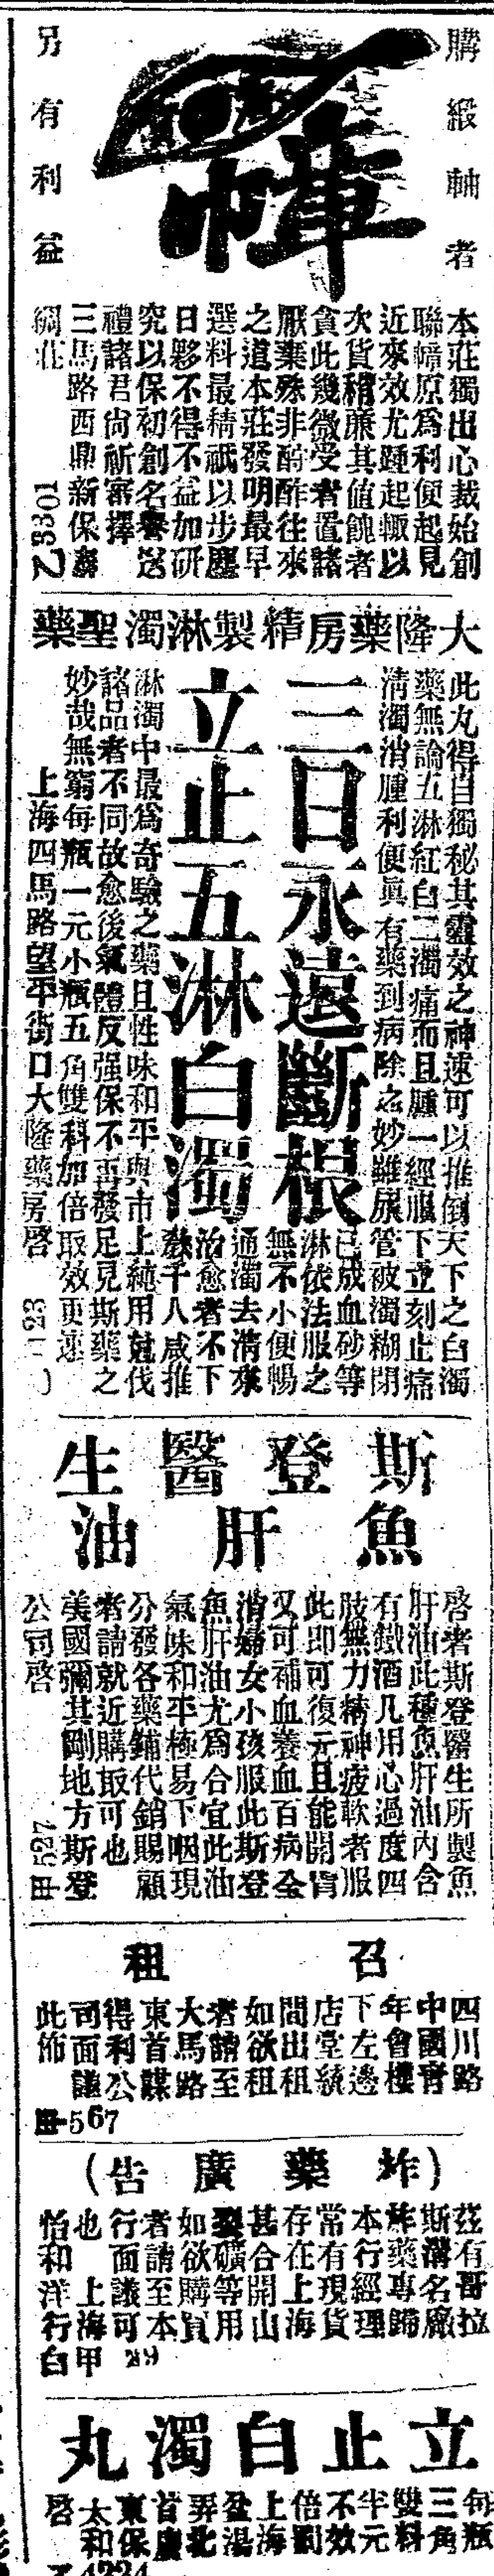 購緞軸者
幛
另有利益
本莊獨出心裁始創
聯幛原為利便起見
近來效尤踵起輒以
次貨稍廉其值餽者
貪此幾微受者置諸
厭棄殊非酬酢往來
之道本莊發明最早
選料最精祇以步塵
日夥不得不益加研
究以保初創名譽送
禮諸君尚祈審擇
三馬路西鼎新保壽
綢莊
大隆藥房精製淋濁聖藥
此丸得自獨秘其靈效之神速可以推倒天下之白濁
藥無論五淋紅白二濁痛而且腫一經服下立刻止痛
清濁消腫利便眞有藥到病除之妙雖尿管被濁糊閉
三日永遠斷根
立止五淋白濁
已成血砂等
淋依法服之
無不小便暢
通濁去清來
治愈者不下
數千人咸推
淋濁中最為奇驗之藥且性味和平與市上純用尅伐
諸品者不同故愈後氣體反强保不再發足見斯藥之
妙哉無窮每瓶一元小瓶五角雙料加倍取效更速
上海四馬路望平街口大隆藥房啓
斯登醫生
魚肝油
啓者斯登醫生所製魚
肝油此種魚肝油內含
有鐵酒凡用心過度四
肢無力精神疲軟者服
此即可復元且能開胃
又可補血養血百病全
消婦女小孩服此斯登
魚肝油尤為合宜此油
氣味和平極易下咽現
分發各藥鋪代銷賜顧
者請就近購取可也
美國彌其剛地方斯登
公司啓 甲527
召租
四川路
中國青
年會樓
下左邊
店堂統
間出租
如欲租
者請至
大馬路
東首謀
得利公
司面議
此佈
567
(炸藥廣告)
茲有哥拉
斯溝名廠
炸藥專歸
本行經理
常有現貨
存在上海
甚合開山
劈礦等用
如欲購買
者請至本
行面議可
也 上海甲
怡和洋行白
29
立止白濁丸
每瓶
三角
雙料
半元
不效
倍罰
上海
盆湯
弄北
首廣
東保
太和
啓
4224